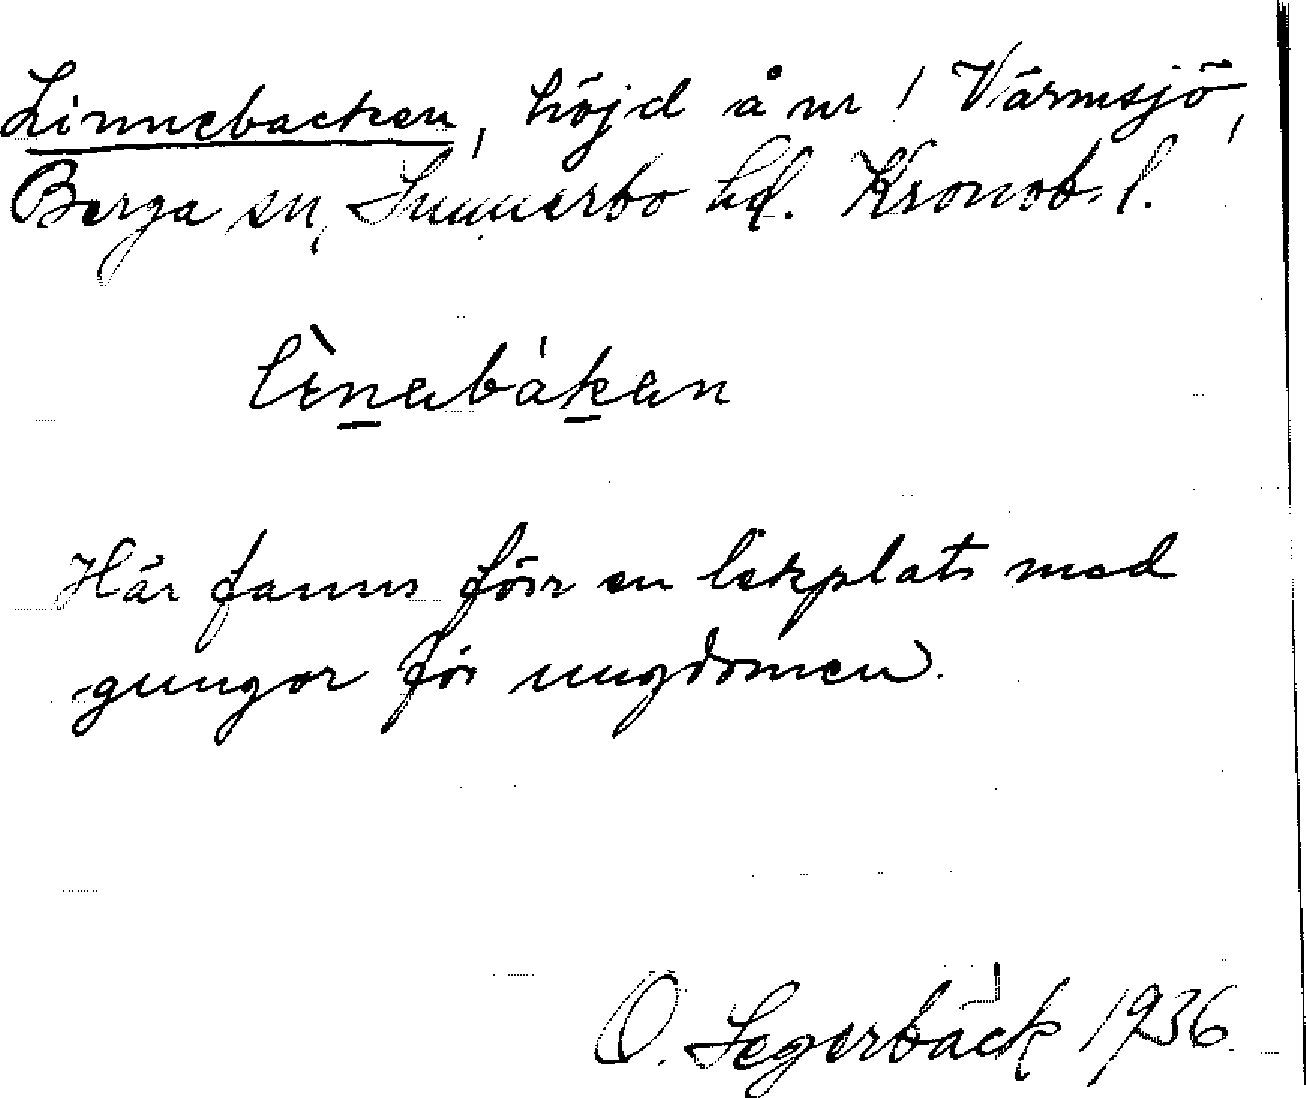 Linnebacken, höjd å nr 1 Värmsjö,
Berga sn, Sunnerbo hd. Kronob. l.
lìnabákan
Här fanns förr en lekplats med
gungor för ungdomen.
O. Segerbäck 1936.